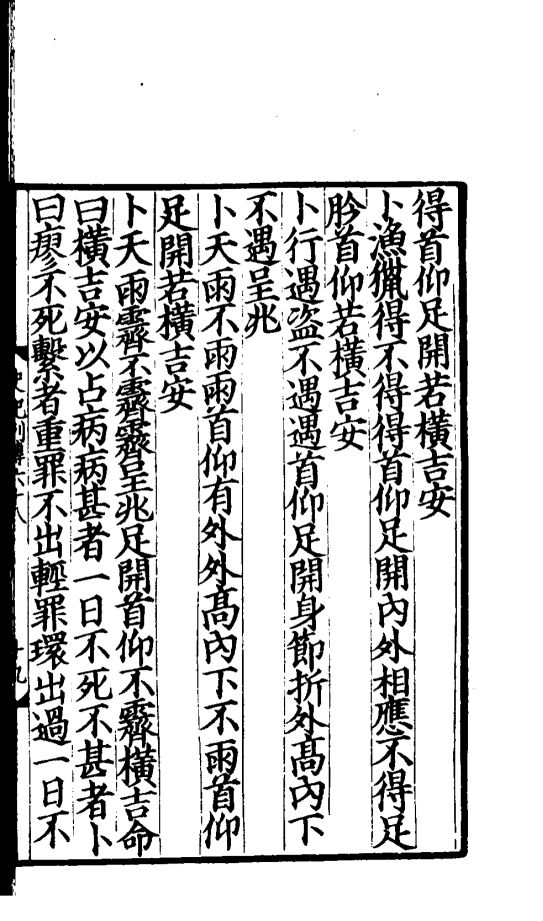 得首仰足開若橫吉安
卜漁獵得不得得首仰足開內外相應不得足
肣首仰若橫吉安
卜行遇盜不遇遇首仰足開身節折外高內下
不遇呈兆
卜天雨不雨雨首仰有外外高內下不雨首仰
足開若橫吉安
卜天雨霽不霽霽呈兆足開首仰不霽橫吉命
曰橫吉安以占病病甚者一日不死不甚者卜
曰瘳不死繫者重罪不出輕罪環出過一日不
史記列傳六十八
十九